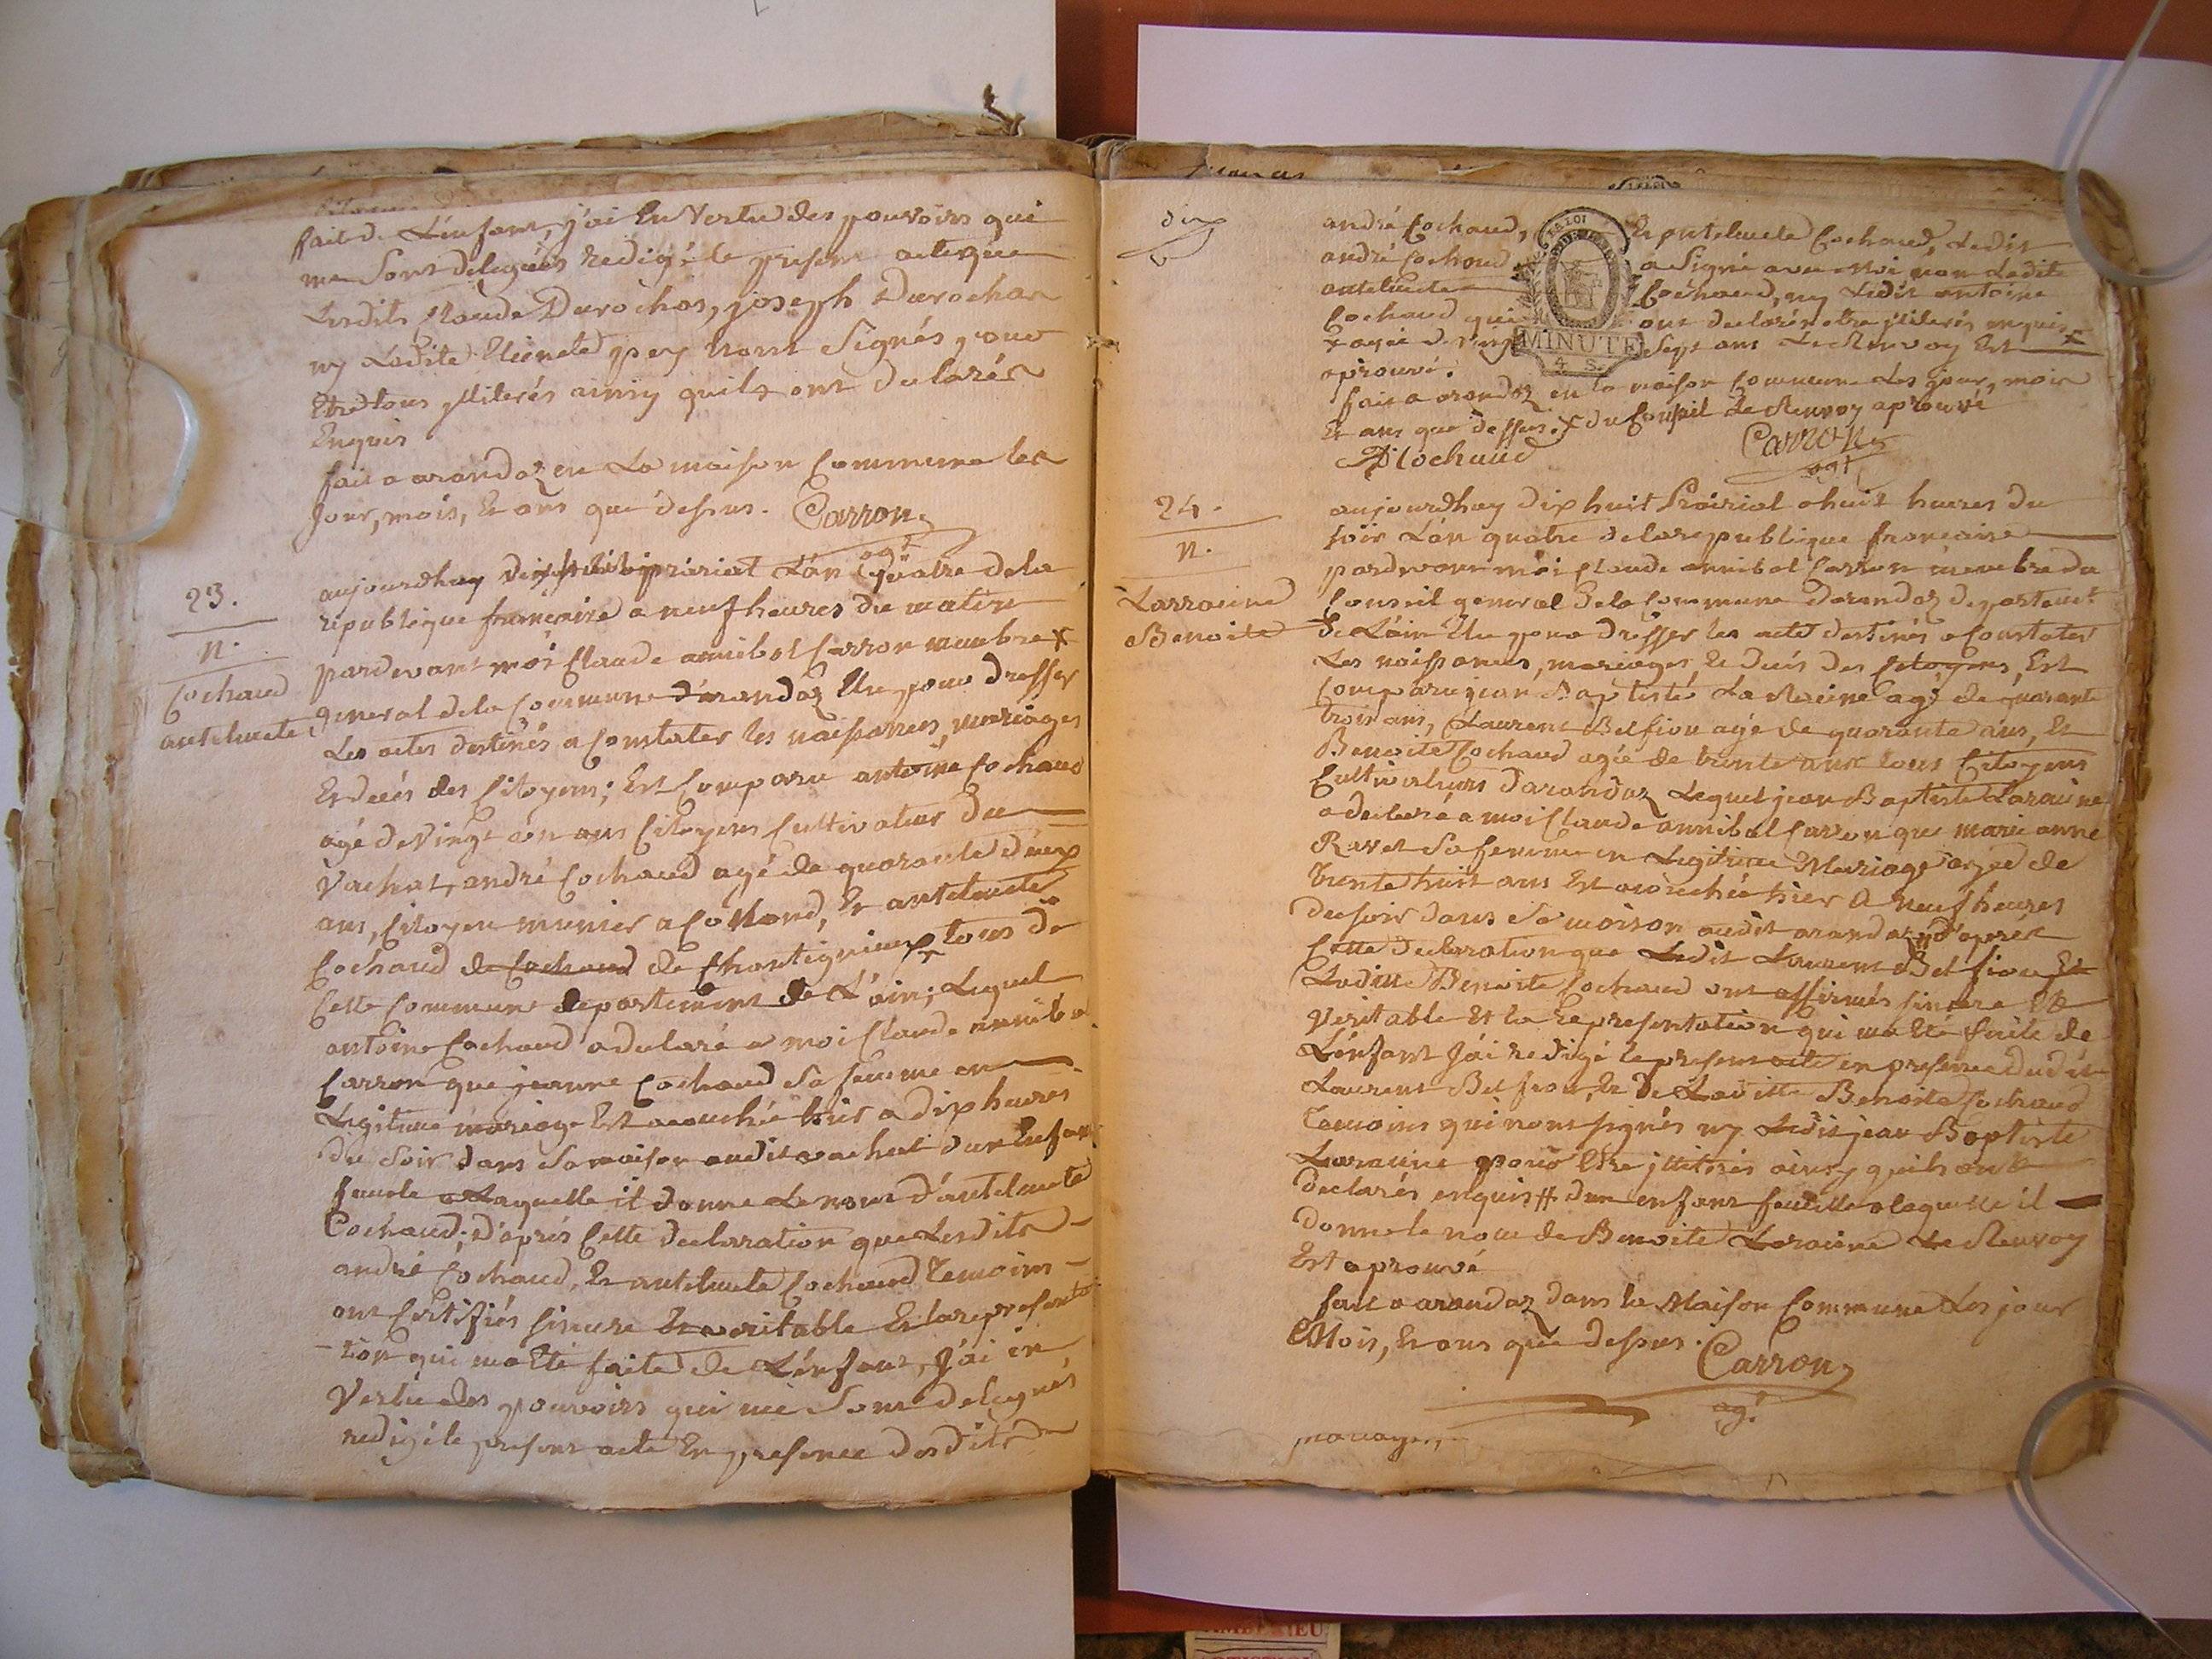 fait de L'enfant, j'ai En Vertu des pouvoirs qui
me Sont delegués redigé le present acte que
Lesdits Claude Durochas, joseph Durochas
ny Ladite pey nont Signés pour
Etre tous illiterés ainsy quils ont declarés
Enquis
fait a arandaz en La maison Commune les
jour, mois, Et ans que dessus. Carron
agt
23.
n.
Cochaud
antelmete
aujourdhuy prairial L'an quatre de la
republique francaise a neuf heures du matin
pardevant moi Claude annibal Carron membre x
general de la Commune d'arandaz Elu pour dresser
Les actes destinés a Constater les naissances, mariages
Et decés des Citoyens; Est Comparu antoine Cochaud
agé de Vingt un ans Citoyens Cultivateur du
Vachat, andré Cochaud agé de quarante deux
ans, Citoyen munier a Collond, Et antelmete
Cochaud de Cochaud de Chantignieux x tous de
Cette Commune departement de L'ain; Lequel
antoine Cochaud a declaré a moi Claude annibal
Carron que jeanne Cochaud Sa femme en
Legitime mariage Est acouchée hier a dix heures
du Soir dans Sa maison audit vachat d'un Enfant
femele a Laquelle il donne Le nom d'antelmete
Cochaud; d'aprés Cette declaration que Lesdits
andré Cochaud, Et antelmete Cochaud Temoins
ont Certifiés sincere Et veritable Et la representa-
-tion qui ma Eté faite de L'enfant, J'ai en
Vertu des pouvoirs qui me Sont delegués
redigé le present acte En presence desdits
dix
andré Cochaud, Et antelmete Cochaud, Ledit
andré Cochaud a Signé avec Moi non Ladite
antelmete Cochaud, ny Ledit antoine
Cochaud qui ont declarés etre illiterés enquis x
x agée de vingt Sept ans Le Renvoy Est
aprouvé.
LA LOI
MINUTE
4 S.
fait a arandaz en la maison Commune Les jour, mois
Et ans que dessus. x du Conseil Le Renvoy aprouvé
A Cochaud
Carron
agt
24.
n.
Larracine
Benoite
aujourdhuy dix huit Prairial a huit heures du
soir L'an quatre de la republique francaise
pardevant moi Claude annibal Carron membre du
Conseil general de la Commune Darandaz departemt
de L'ain Elu pour Dresser les acte destinés a Constater
Les naissances, mariages Et decés des Citoyens, Est
Comparu jean Baptiste La Racine agé de quarante
trois ans, Laurent Belfiou agé de quarante ans, Et
Benoite Cochaud agée de trente ans tous Citoyens
Cultivateurs Darandaz Lequel jean Baptiste Laracine
a declaré a moi Claude annibal Carron que marie anne
Ravet Sa femme en Legitime Mariage agée de
Trente huit ans Est acouchée hier a neuf heures
du soir dans Sa maison audit arandaz # d'aprés
Cette declaration que Ledit Laurent Belfiou Et
Ladite Benoite Cochaud ont affirmés sincere Et
Veritable Et la representation qui ma Eté faite de
L'enfant J'ai redigé le present acte en presence dudit
Laurent Belfiou, Et de Laditte Benoite Cochaud
Temoins qui nont signés ny Ledit jean Baptiste
Laracine pour Etre illiterés ainsy quils ont
declarés enquis # d'un enfant femelle a laquelle il
donne le nom de Benoite Laracine Le Renvoy
Est aprouvé
fait a arandaz dans la Maison Commune Les jour
Mois, Et ans que dessus. Carron
agt
mariages